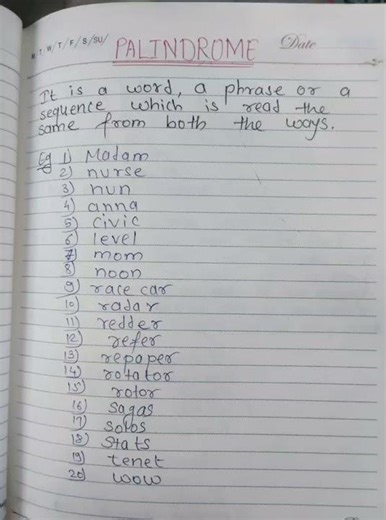 M/T/W/T/F/S/SU/ PALINDROME Date
It is a word, a phrase or a
sequence which is read the
same from both the ways.
Eg 1) Madam
2) nurse
3) nun
4) anna
5) civic
6) level
7) mom
8) noon
9) race car
10) radar
11) redder
12) refer
13) repaper
14) rotator
15) rotor
16) sagas
17) solos
18) Stats
19) tenet
20) wow